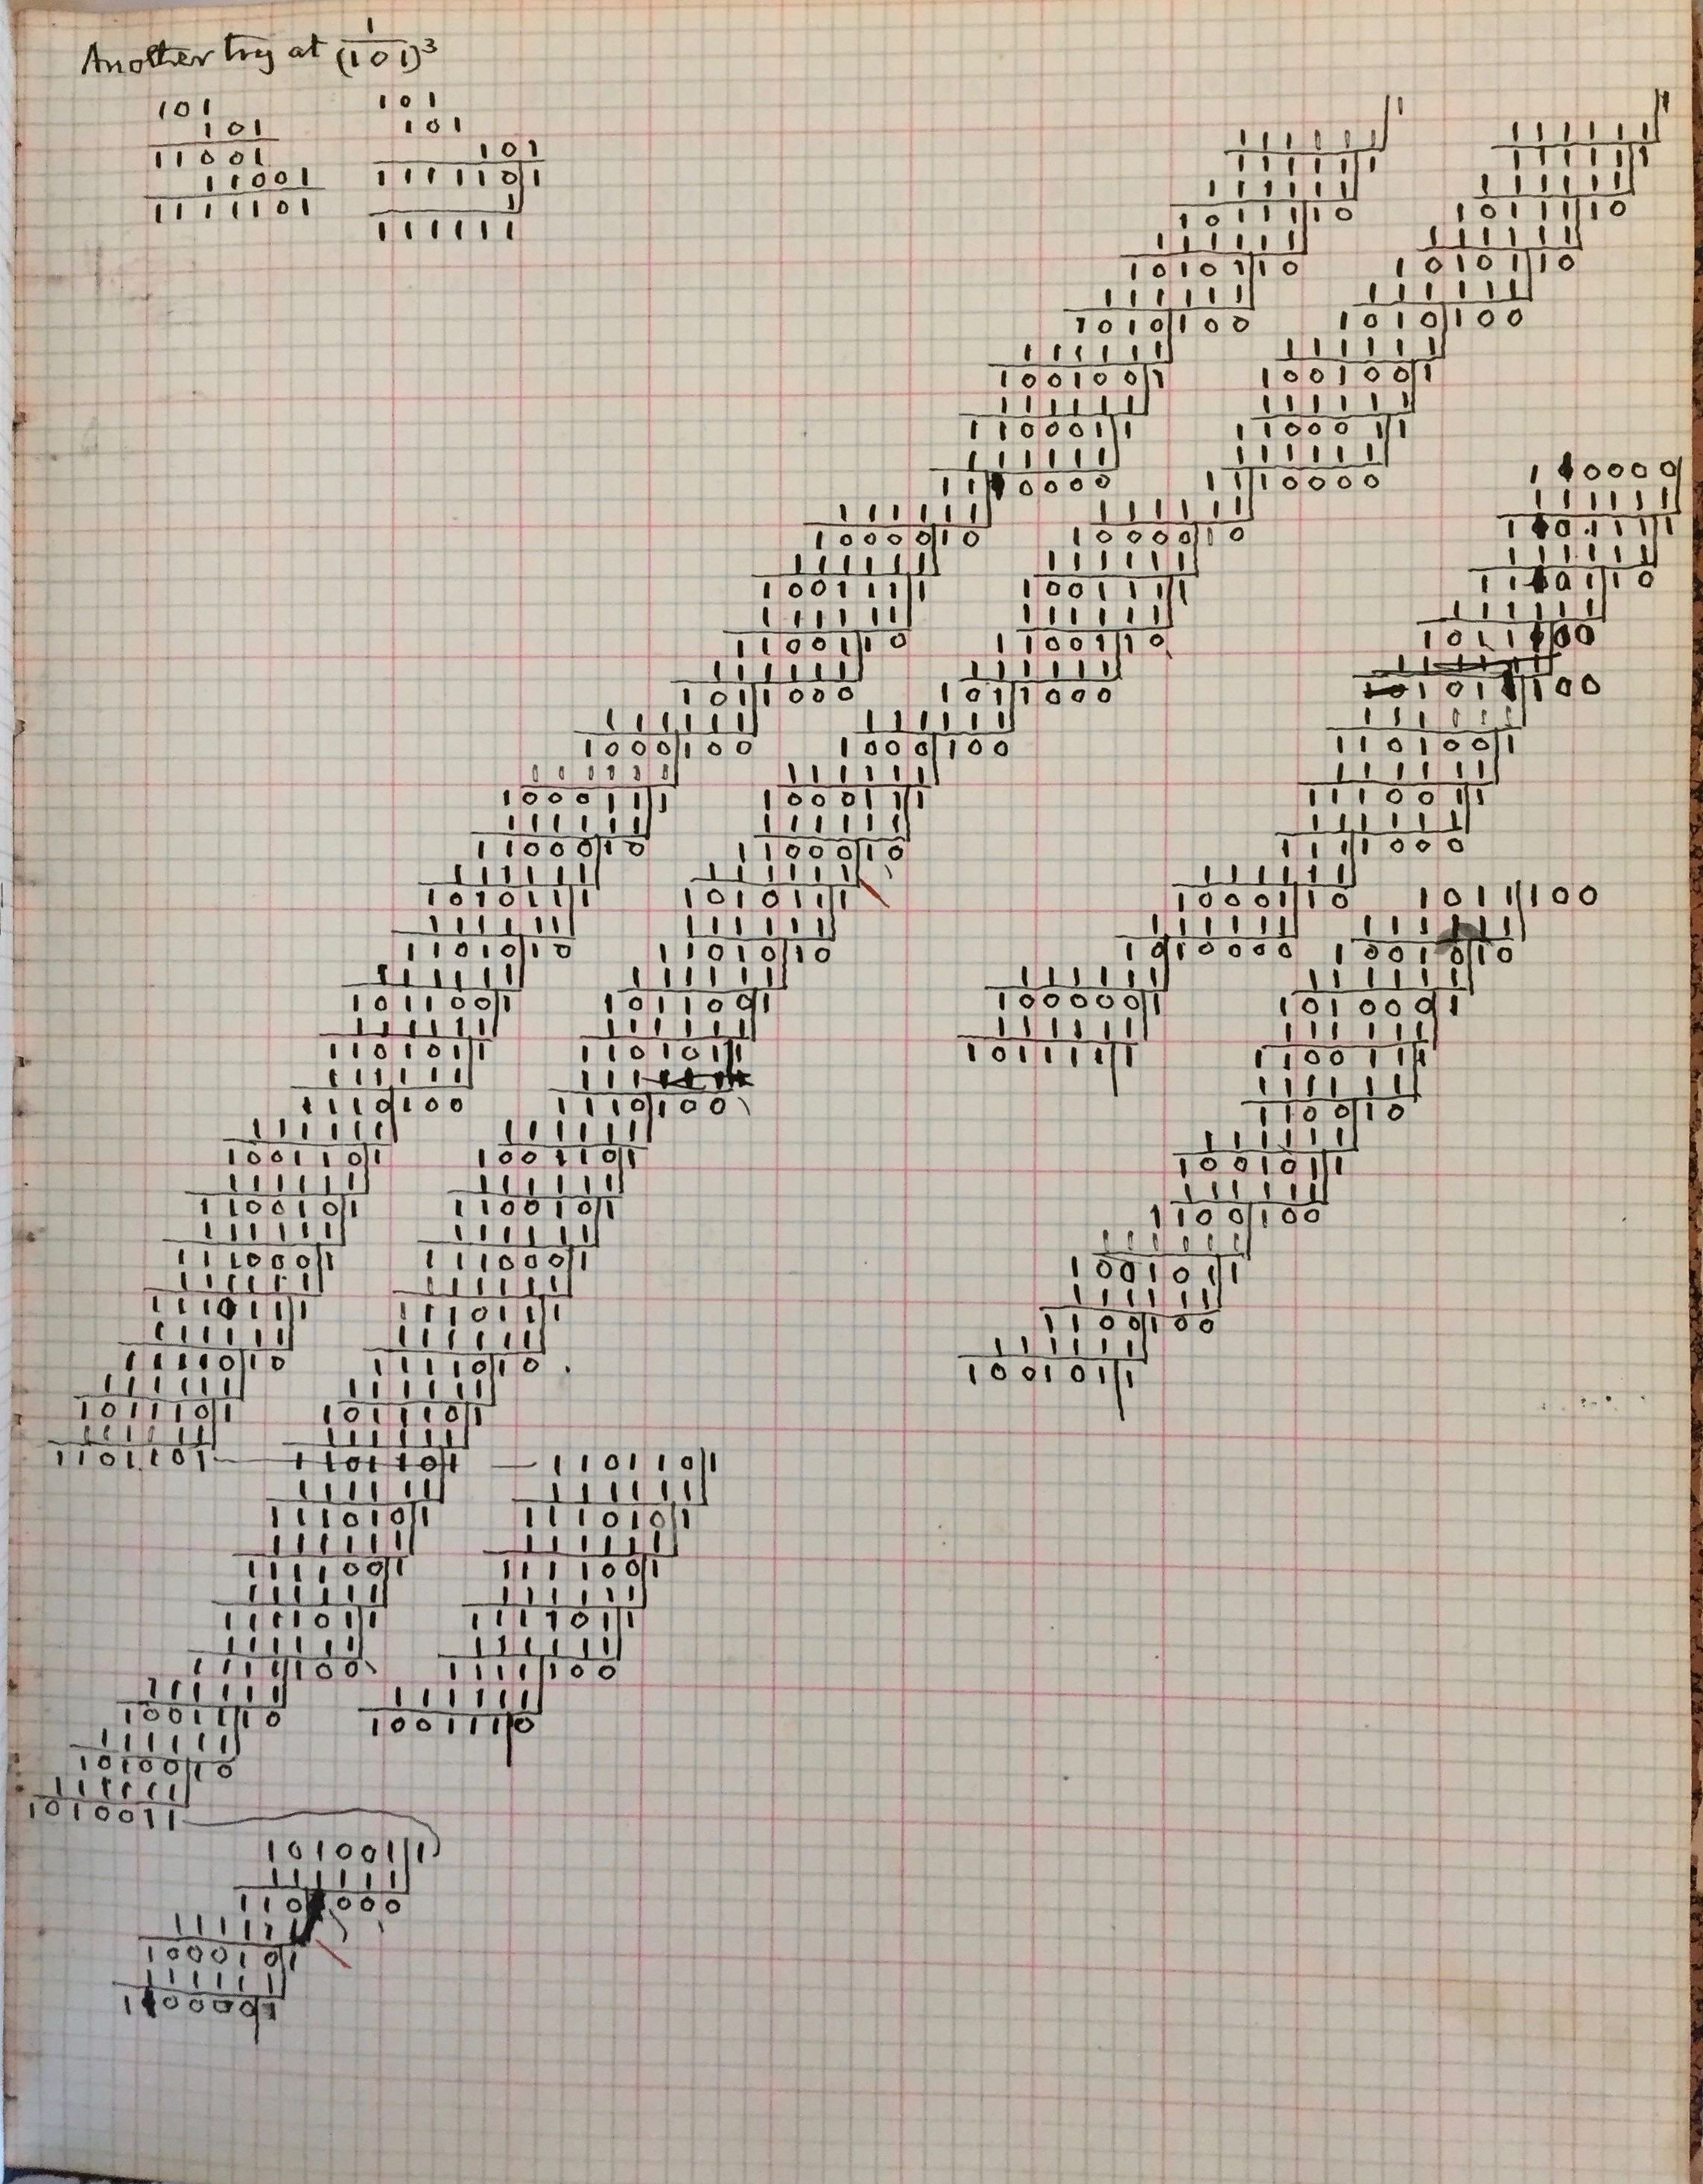 Another try at 1/(101)³
101 101
101 101
11001 101
11001 1111101
1111101 1
111111
1
111111
1111111
111111
10111110
111111
1010110
111111
1010100
111111
1001001
111111
1100011
111111
1110000
111111
1000010
111111
1001111
111111
11001110
111111
1011000
111111
1000100
111111
1000111
111111
1100010
111111
1010111
111111
1101010
111111
1011001
111111
1101011
111111
1110100
111111
1001101
111111
1100101
111111
1110001
111111
1110111
111111
1111010
111111
1011101
111111
1101101
1
111111
1111111
111111
1011110
111111
1010110
111111
1010100
111111
1001001
111111
1100011
111111
1110000
111111
1000010
111111
1001111
111111
1100110
111111
1011000
111111
1000100
111111
1000111
111111
1100010
111111
1010111
111111
1101010
111111
1011001
111111
1101011
1110100
111111
1001101
111111
1100101
111111
1110001
111111
1110111
111111
1111010
111111
1011101
111111
1101101
111111
1110101
111111
1111001
111111
1111011
111111
1111100
111111
1001110
111111
1010010
111111
1010011
1010011
111111
1101000
111111
1000101
111111
1101101
111111
1110101
111111
1111001
111111
1111011
111111
1111100
111111
1001110
110000
111111
111111
111111
1011100
111111
1101001
111111
1110011
111111
1111000
111111
1000110
111111
1010000
111111
1000001
111111
1011111
1011100
111111
1001010
111111
1010001
111111
1100111
111111
1110010
111111
1001011
111111
1100100
111111
1001011
111111
1100100
111111
1001011